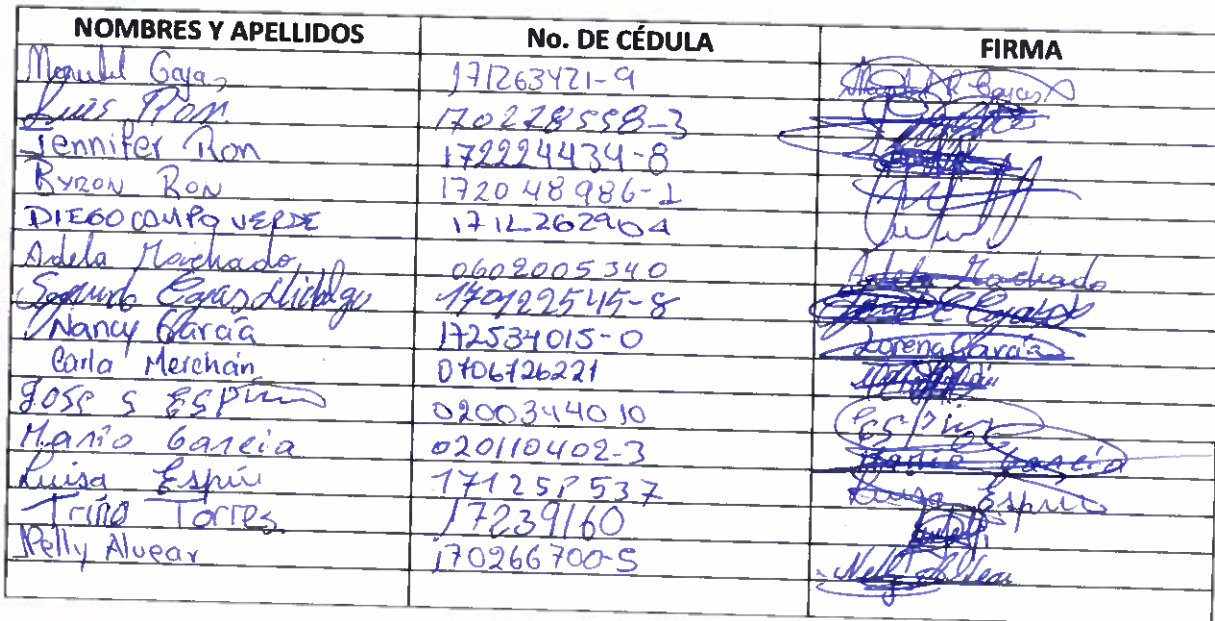 NOMBRES Y APELLIDOS No. DE CÉDULA FIRMA
Manuel Cajas 171263421-9
Luis Ron 170228558-3
Jennifer Ron 172224434-8
Byron Ron 172048986-1
DIEGO CAMPO VERDE 1712262904
Adela Machado 0602005340 Adela Machado
Segundo Egas Hidalgo 170122545-8
Nancy García 172534015-0 Lorena García
Carla Merchán 0706726221
Jose S Espín 0200344010 Espín
Mario Garcia 020110402-3 Mario Garcia
Luisa Espín 171257537 Luisa Espín
Trino Torres 17239160
Nelly Alvear 170266700-5 Nelly Alvear